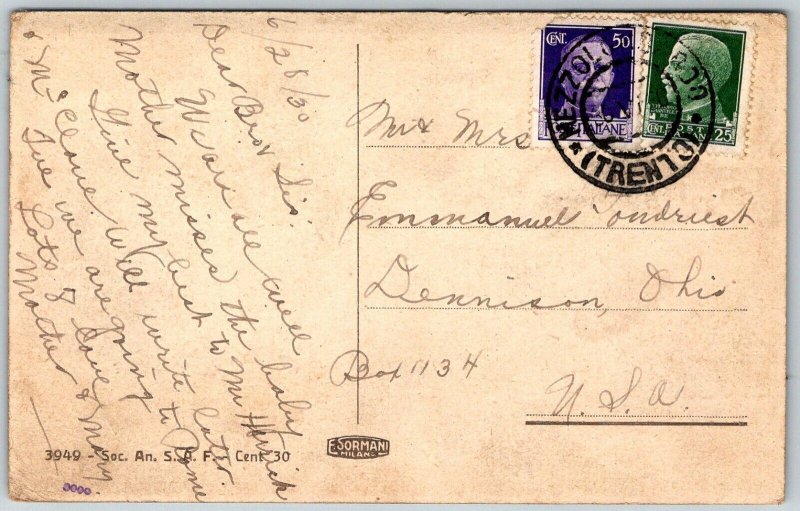 6/28/30
Dear Bro & Sis.
We are all well
Mother misses the baby
Give my best to Mr
& Mc Clane will write later
Sue we are going to Rome
Lots of love
Mother & Mary
Mr & Mrs
Emmanuel ondriest
Dennison, Ohio
Box 1134
U.S.A.
CENT. 50
ITALIANE
CENT. POST 25
MEZZOLO
(TRENTO)
3949 - Soc. An. S. A. F. - Cent 30
E. SORMANI
MILANO